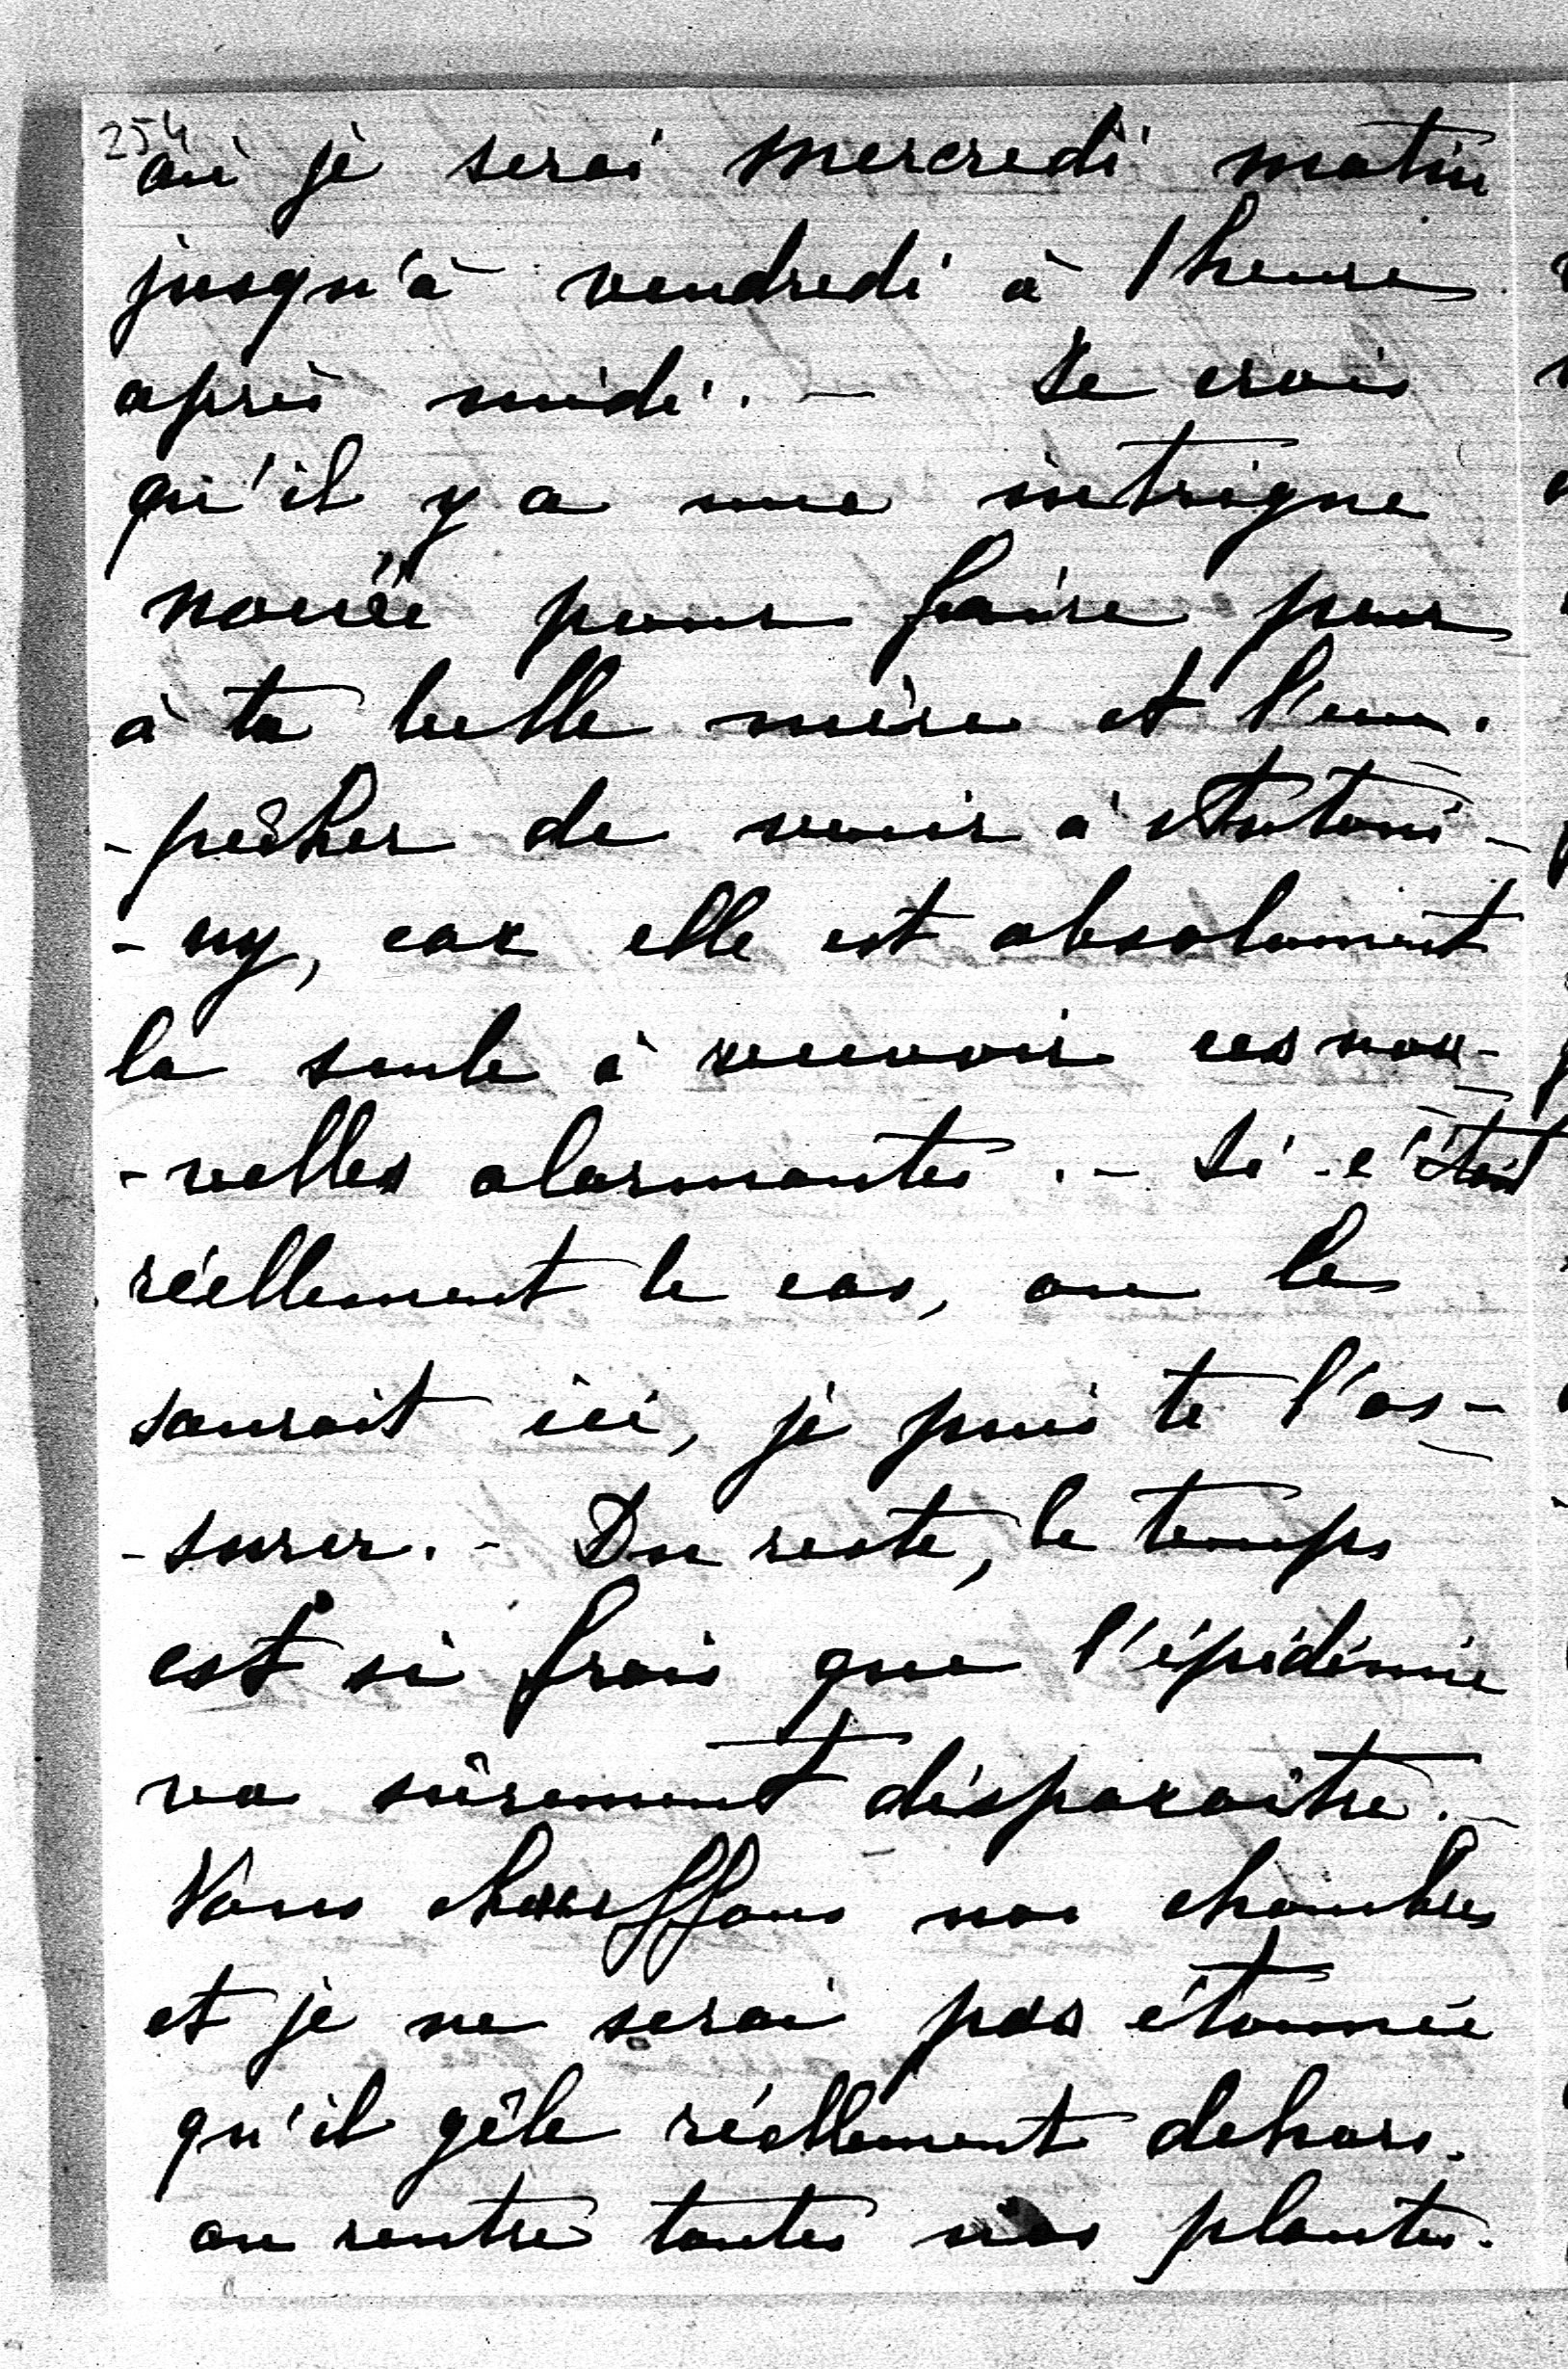 254
où je serai mercredi matin
jusqu'à vendredi à 1 heure
après midi. - Je crois
qu'il y a une intrigue
nouée pour faire peur
à ta belle mère et l'em-
-pêcher de venir à Antoni-
-ny, car elle est absolument
la seule à recevoir ces nou-
-velles alarmantes. - Si c'était
réellement le cas, on le
saurait ici, je puis te l'as-
-surer. - Du reste, le temps
est si frais que l'épidémie
va sûrement disparaitre. -
Nous chauffons nos chambres
et je ne serai pas étonnée
qu'il gêle réellement dehors.
on rentre toutes nos plantes.